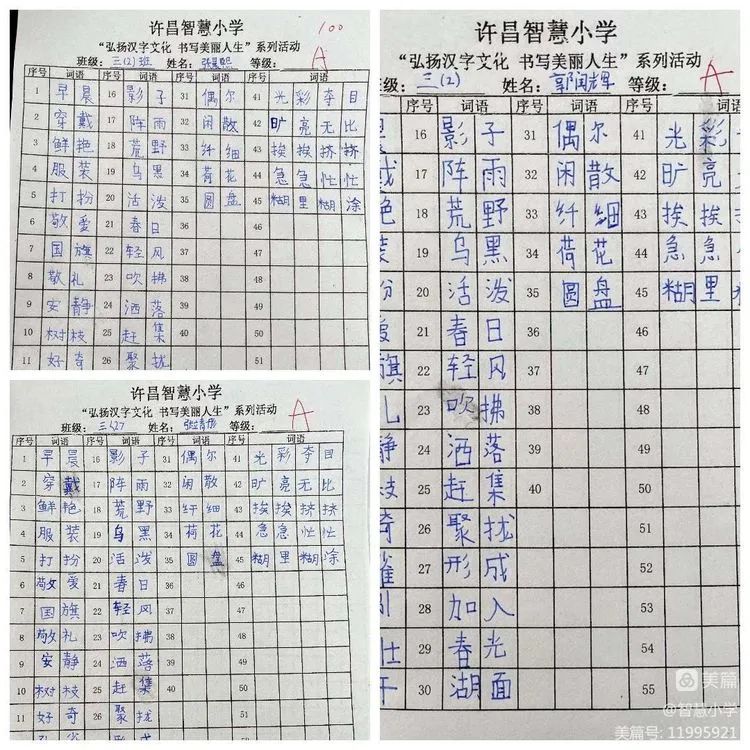 许昌智慧小学
100
“弘扬汉字文化 书写美丽人生”系列活动
班级: 三(2)班 姓名: 张晨熙 等级: A
序号 词语 序号 词语 序号 词语 序号 词语
1 早晨 16 影子 31 偶尔 41 光彩夺目
2 穿戴 17 阵雨 32 闲散 42 旷亮无比
3 鲜艳 18 荒野 33 纤细 43 挨挨挤挤
4 服装 19 乌黑 34 荷花 44 急急忙忙
5 打扮 20 活泼 35 圆盘 45 糊里糊涂
6 敬爱 21 春日 36 46
7 国旗 22 轻风 37 47
8 敬礼 23 吹拂 38 48
9 安静 24 洒落 39 49
10 树枝 25 赶集 40 50
11 好奇 26 聚拢 51
许昌智慧小学
“弘扬汉字文化 书写美丽人生”系列活动
班级: 三(2) 姓名: 等级: A
序号 词语 序号 词语 序号 词语 序号 词语
1 早晨 16 影子 31 偶尔 41 光彩夺目
2 穿戴 17 阵雨 32 闲散 42 旷亮无比
3 鲜艳 18 荒野 33 纤细 43 挨挨挤挤
4 服装 19 乌黑 34 荷花 44 急急忙忙
5 打扮 20 活泼 35 圆盘 45 糊里糊涂
6 敬爱 21 春日 36 46
7 国旗 22 轻风 37 47
8 敬礼 23 吹拂 38 48
9 安静 24 洒落 39 49
10 树枝 25 赶集 40 50
11 好奇 26 聚拢 51
形成
许昌智慧小学
“弘扬汉字文化 书写美丽人生”系列活动
级: 三(2) 姓名: 郭润辉 等级: A
序号 词语 序号 词语 序号
16 影子 31 偶尔 41 光彩
17 阵雨 32 闲散 42 旷亮
艳 18 荒野 33 纤细 43 挨挨
装 19 乌黑 34 荷花 44 急急
扮 20 活泼 35 圆盘 45 糊里
爱 21 春日 36 46
旗 22 轻风 37 47
礼 23 吹拂 38 48
静 24 洒落 39 49
枝 25 赶集 40 50
奇 26 聚拢 51
27 形成 52
28 加入 53
29 春光 54
30 湖面 55
美篇
@智慧小学
美篇号: 11995921